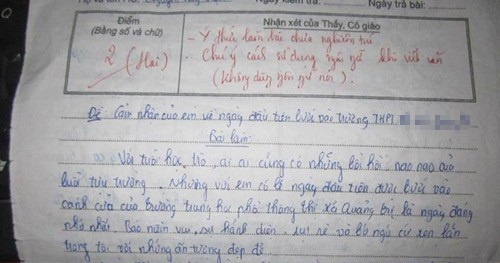 Ngày kiểm tra: Ngày trả bài:
Điểm
(Bằng số và chữ)
Nhận xét của Thầy, Cô giáo
2 (Hai)
- Ý thức làm bài chưa nghiêm túc
- Chú ý cách sử dụng ngôn ngữ khi viết văn
(Không dùng ngôn ngữ nói).
Đề: Cảm nhận của em về ngày đầu tiên bước vào trường THPT
Bài làm:
Với tuổi học trò, ai ai cũng có những bồi hồi, nao nao của
buổi tựu trường. Nhưng với em có lẽ ngày đầu tiên bước vào
cánh cửa của trường trung học phổ thông thị xã Quảng Trị là ngày đáng
nhớ nhất. Bao niềm vui, sự hãnh diện, rụt rè và bỡ ngỡ cứ xen lẫn
trong tôi với những ấn tượng đẹp đẽ